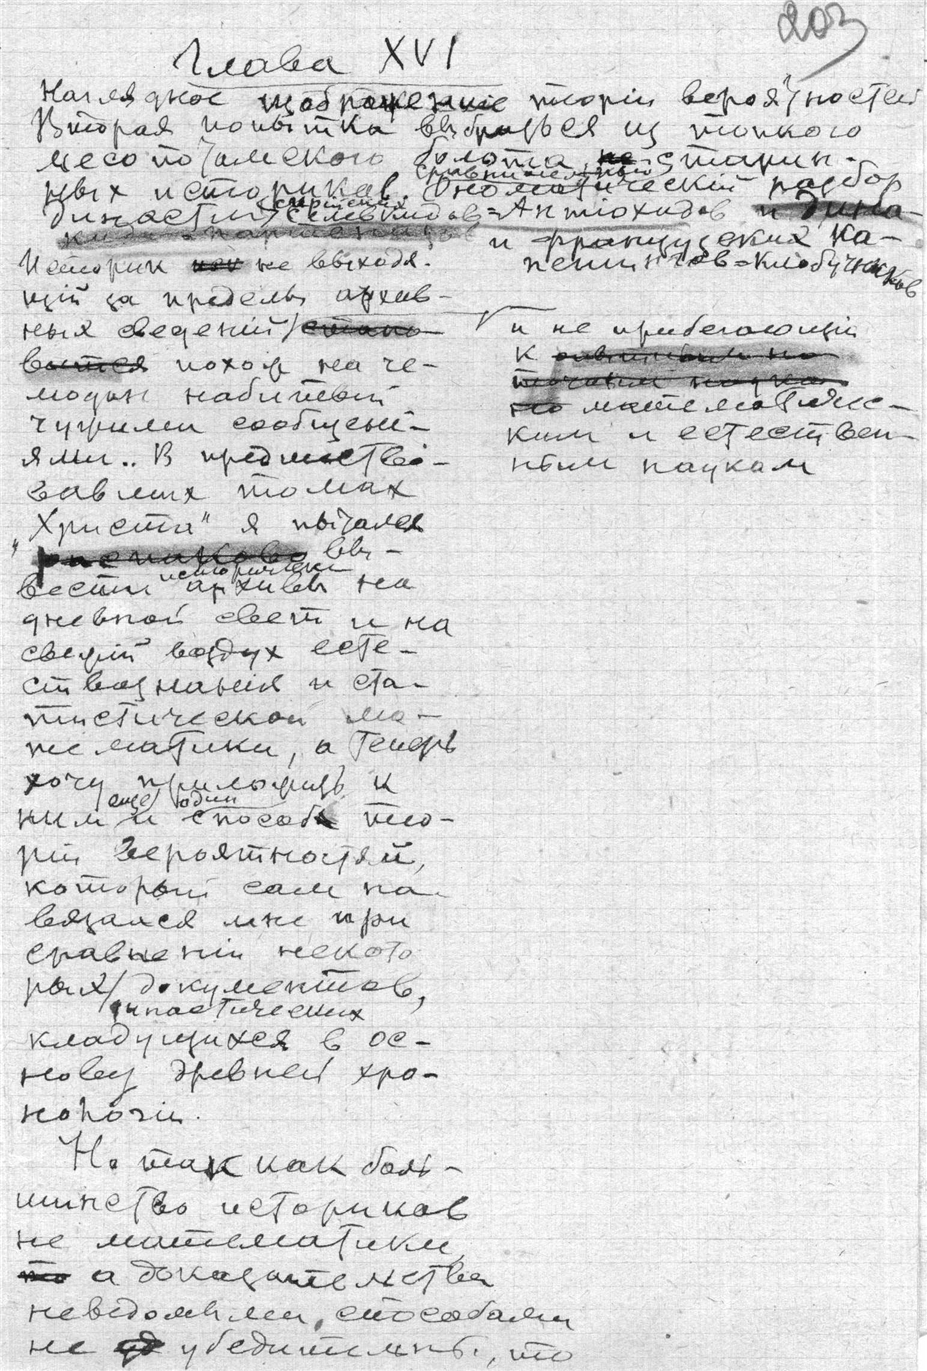 203
Глава XVI
Наглядное изображение теоріи вероятностей
Вторая попытка выбраться из топкого
месопотамского болота старин-
ных историков. Сравнительный ономатическій разбор
династіи сирійских Селевкидов=Антіохидов
и французских Ка-
петингов=Клобучников
Историк не выходя-
щій за пределы архив-
ных сведеній
и не прибегающій
к
математичес-
ким и естествен-
ным наукам
похож на че-
модан набитый
чужими сообщені-
ями.. В предшество-
вавших томах
"Христа" я пытался
вы-
вести исторические архивы на
дневной свет и на
свежій воздух есте-
ствознанія и ста-
тистической ма-
тематики, а теперь
хочу приложить к
ним еще и один способ тео-
ріи вероятностей,
который сам на-
вязался мне при
сравненіи некото
рых династических документов,
кладущихся в ос-
нову древней хро-
нологіи.
Но так как боль-
шинство историков
не математики,
а доказательства
неведомыми способами
не убедительны, то